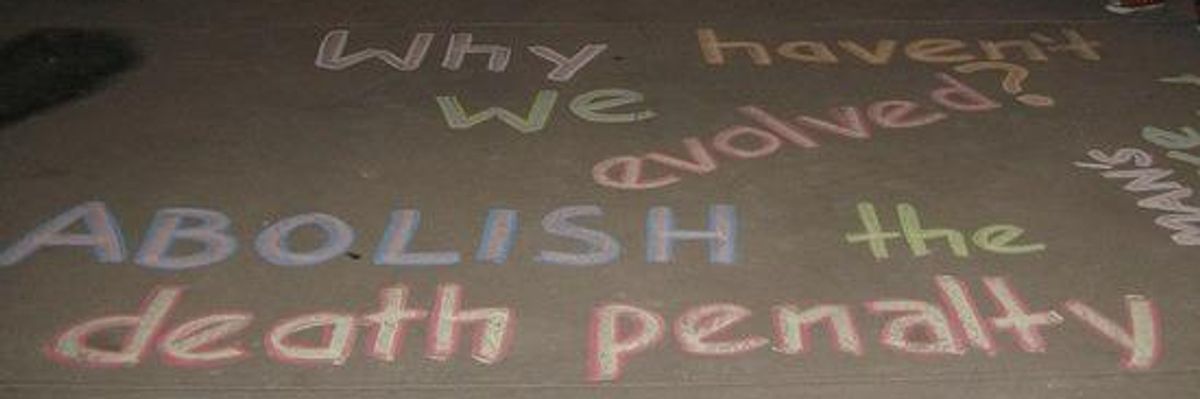 Why haven't
we evolved?
ABOLISH the
death penalty
MAN'S